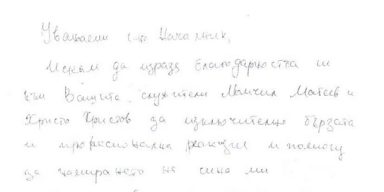 Уважаеми г-н Началник,
Искам да изразя благодарността си
към Вашите служители Момчил Матеев и
Христо Христов за изключително бързата
и професионална реакция и помощ
за намирането на сина ми